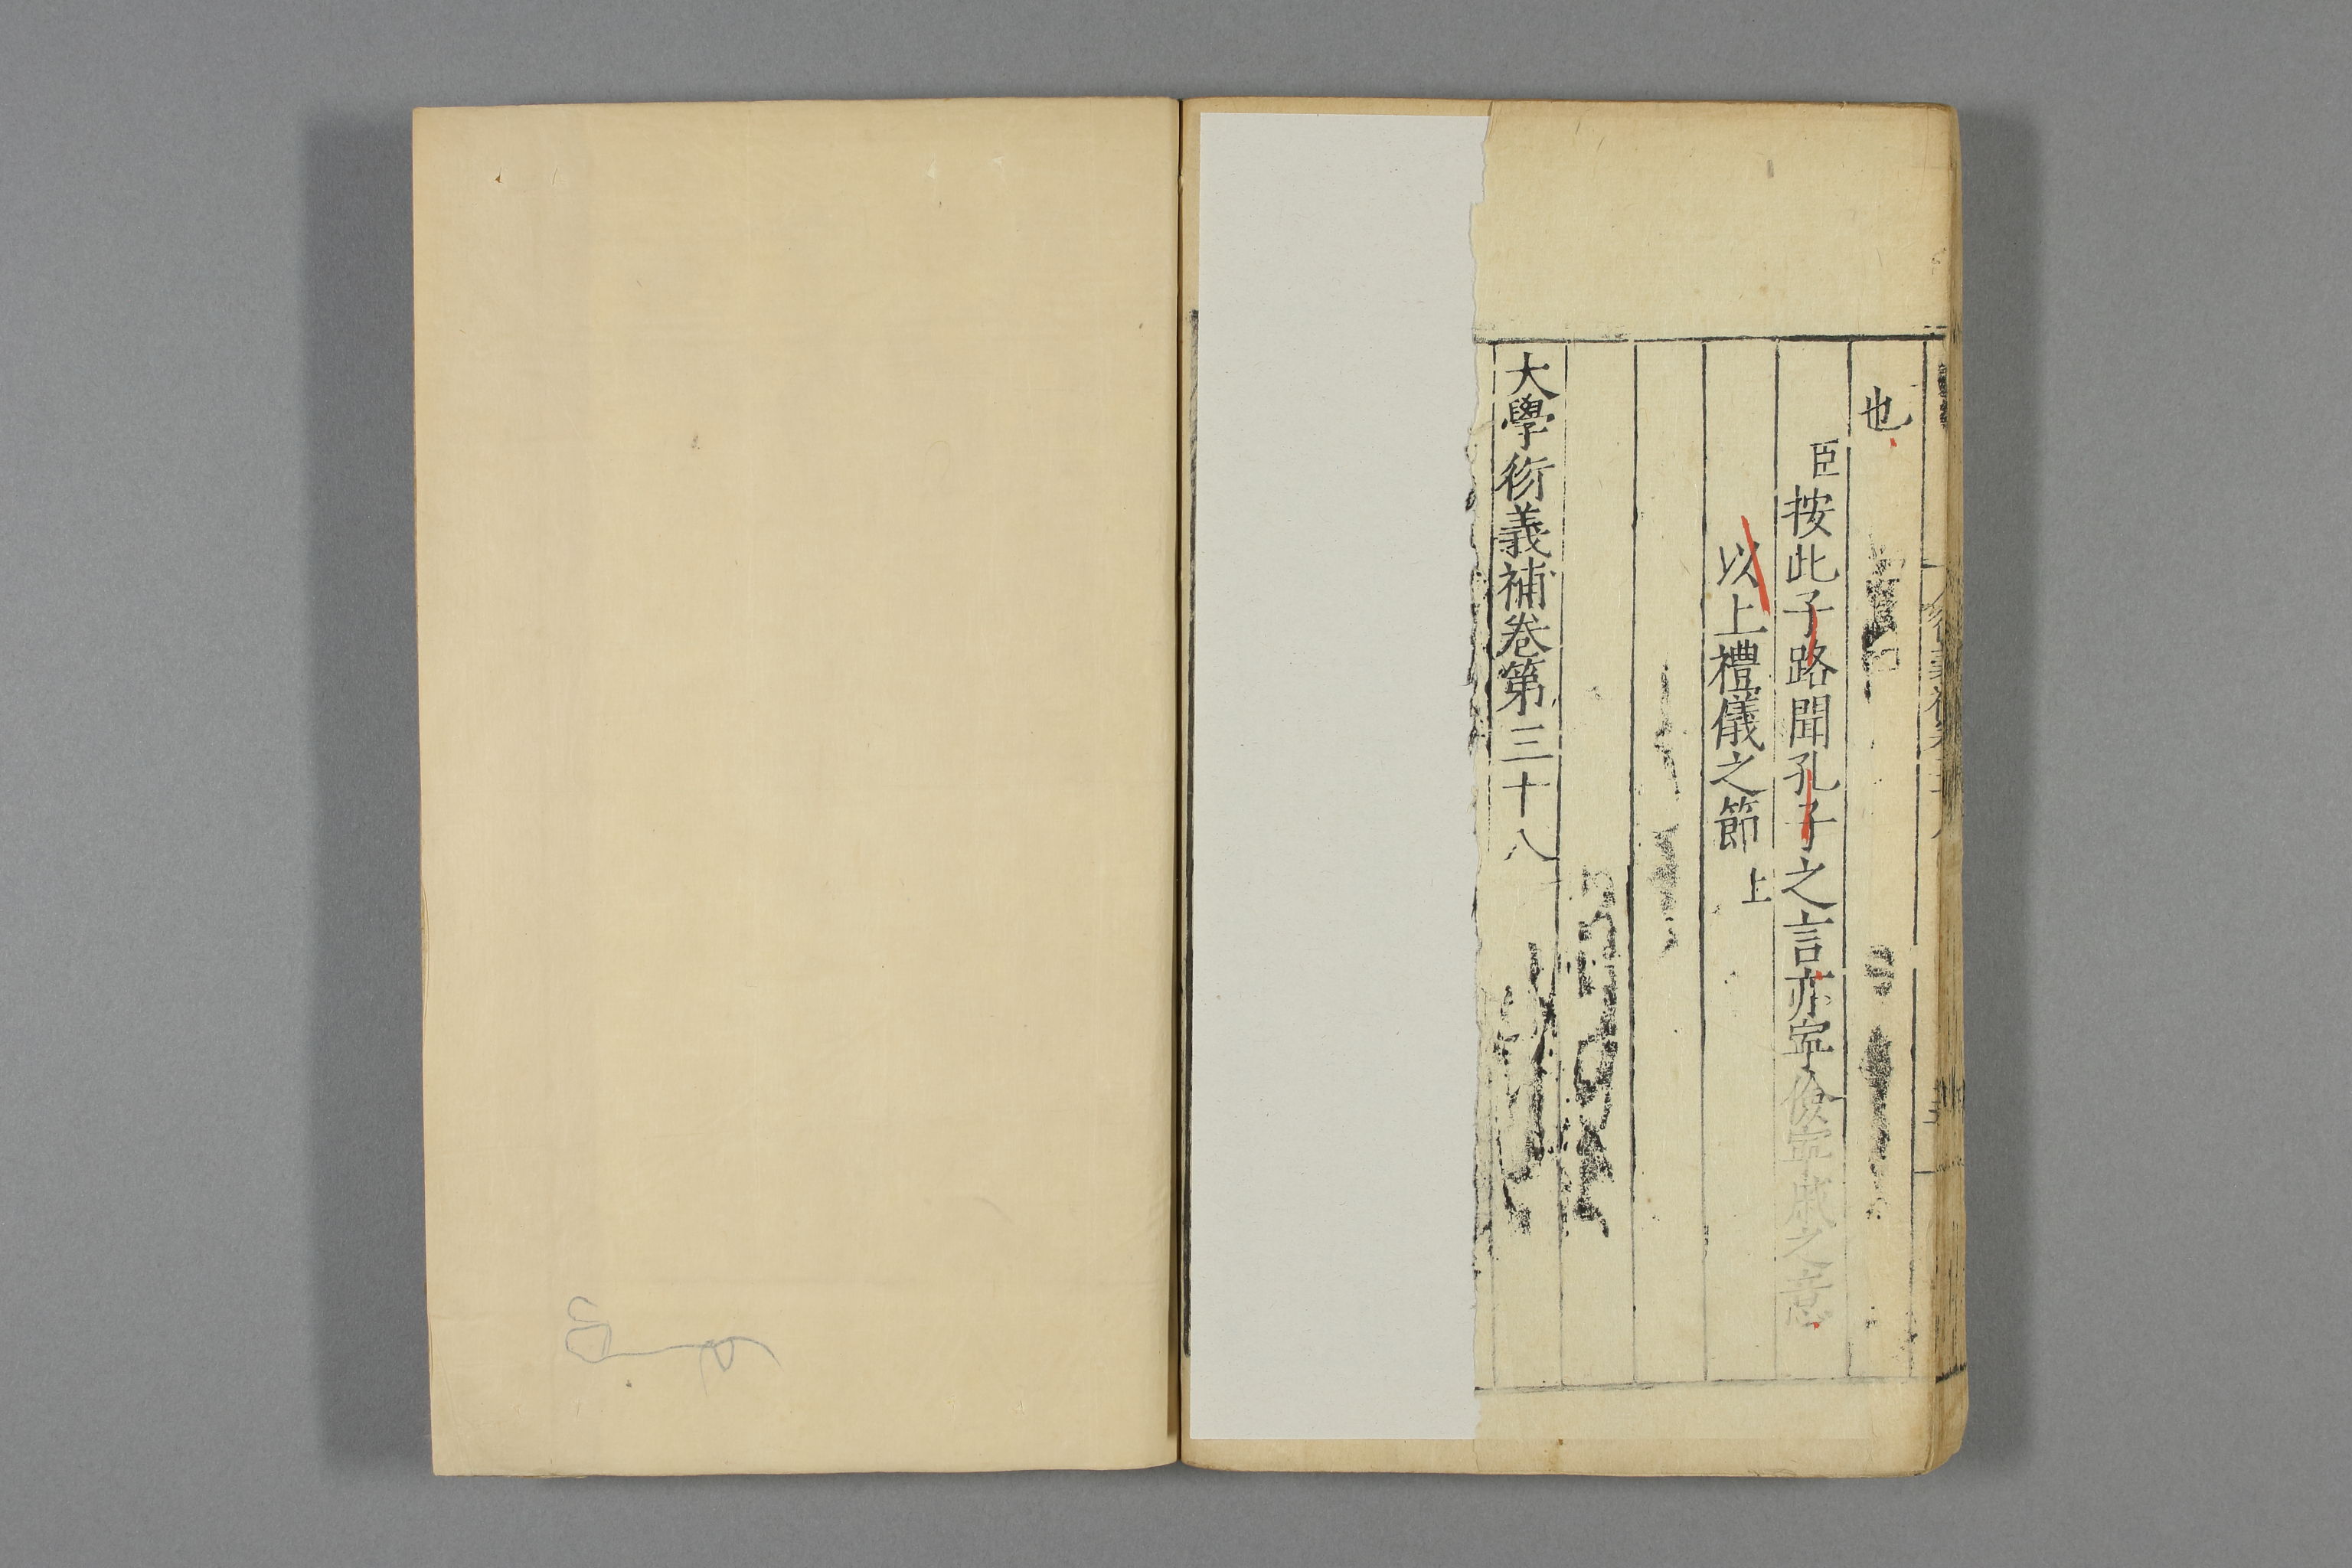 也
臣按此子路聞孔子之言亦寧儉寧戚之意
以上禮儀之節上
大學衍義補卷第三十八